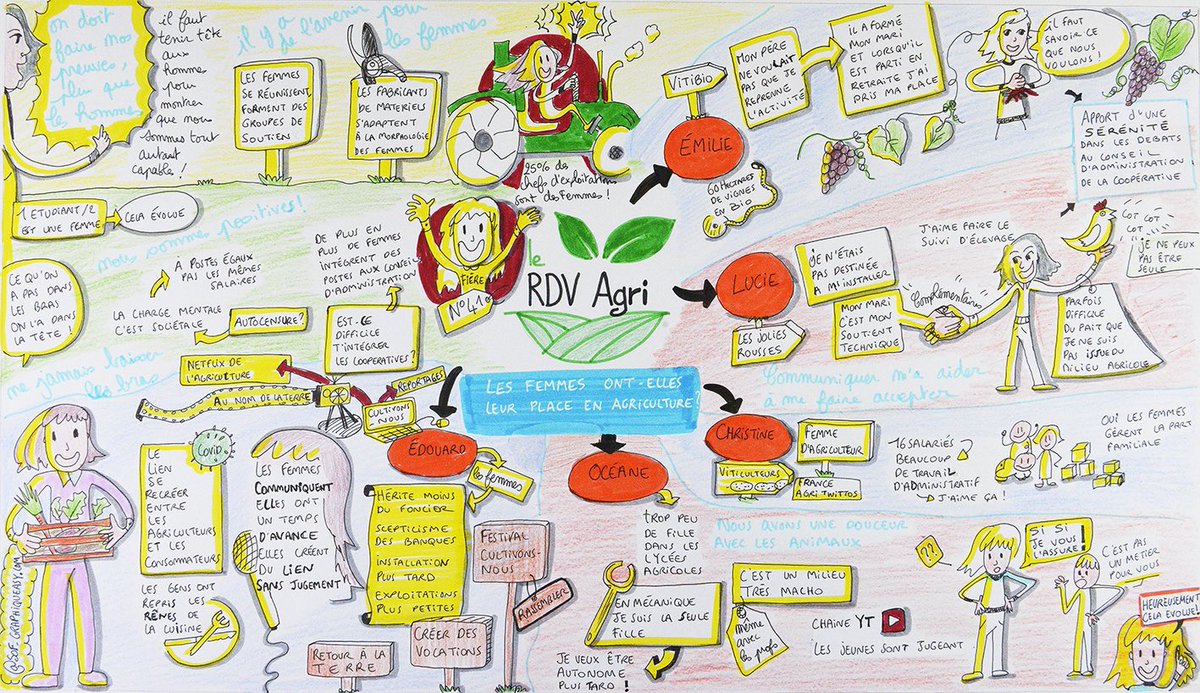 on doit
faire nos
preuves,
plus que
les hommes
il faut
tenir tête
aux
hommes
pour
montrer
que nous
sommes tout
autant
capable !
il y a de l'avenir pour
les femmes
LES FEMMES
SE RÉUNISSENT,
FORMENT DES
GROUPES DE
SOUTIENS
LES FABRICANTS
DE MATERIELS
S'ADAPTENT
À LA MORPHOLOGIE
DES FEMMES
25% des
chefs d'exploitations
sont des femmes !
1 ETUDIANT/2
EST UNE FEMME
CELA ÉVOLUE
nous sommes positives !
CE QU'ON
A PAS DANS
LES BRAS
ON L'A DANS
LA TÊTE !
À POSTES ÉGAUX
PAS LES MÊMES
SALAIRES
LA CHARGE MENTALE
C'EST SOCIÉTALE
AUTOCENSURE ?
DE PLUS EN
PLUS DE FEMMES
INTÈGRENT DES
POSTES AUX CONSEILS
D'ADMINISTRATION
EST-CE
DIFFICILE
D'INTÉGRER
LES COOPERATIVES ?
FIÈRE
N°41
le
RDV Agri
LES FEMMES ONT-ELLES
LEUR PLACE EN AGRICULTURE ?
ÉMILIE
VITIBIO
60 HECTARES
DE VIGNES
EN BIO
MON PÈRE
NE VOULAIT
PAS QUE JE
REPRENNE
L'ACTIVITÉ
IL A FORMÉ
MON MARI
ET LORSQU'IL
EST PARTI EN
RETRAITE J'AI
PRIS MA PLACE
IL FAUT
SAVOIR CE
QUE NOUS
VOULONS !
APPORT D'UNE
SÉRÉNITÉ
DANS LES DEBATS
AU CONSEIL
D'ADMINISTRATION
DE LA COOPÉRATIVE
LUCIE
LES JOLIES
ROUSSES
JE N'ÉTAIS
PAS DESTINÉE
A M'INSTALLER
MON MARI
C'EST MON
SOUTIENT
TECHNIQUE
Complémentaires
J'AIME FAIRE LE
SUIVI D'ÉLEVAGE
COT COT
COT
JE NE PEUX
PAS ÊTRE
SEULE
PARFOIS
DIFFICILE
DU FAIT QUE
JE NE SUIS
PAS ISSUE DU
MILIEU AGRICOLE
Communiquer m'a aider
à me faire accepter
me jamais baisser
les bras
NETFLIX DE
L'AGRICULTURE
AU NOM DE LA TERRE
REPORTAGES
CULTIVONS
NOUS
ÉDOUARD
les femmes
HÉRITE MOINS
DU FONCIER
SCEPTICISME
DES BANQUES
INSTALLATION
PLUS TARD
EXPLOITATIONS
PLUS PETITES
LE
LIEN
SE
RECRÉER
ENTRE
LES
AGRICULTEURS
ET LES
CONSOMMATEURS
COVID
LES GENS ONT
REPRIS LES
RÊNES DE
LA CUISINE
LES FEMMES
COMMUNIQUENT
ELLES ONT
UN TEMPS
D'AVANCE
ELLES CRÉENT
DU LIEN
SANS JUGEMENT
FESTIVAL
CULTIVONS-
NOUS
RASSEMBLER
CRÉER DES
VOCATIONS
RETOUR À LA
TERRE
OCÉANE
TROP PEU
DE FILLE
DANS LES
LYCÉES
AGRICOLES
EN MÉCANIQUE
JE SUIS LA SEULE
FILLE
JE VEUX ÊTRE
AUTONOME
PLUS TARD !
C'EST UN MILIEU
TRÈS MACHO
même
avec
les profs
CHAINE YT
LES JEUNES SONT JUGEANT
CHRISTINE
FEMME
D'AGRICULTEUR
VITICULTEURS
FRANCE
AGRI TWITTOS
16 SALARIÉS
BEAUCOUP
DE TRAVAIL
D'ADMINISTRATIF
J'AIME ÇA !
OUI LES FEMMES
GÈRENT LA PART
FAMILIALE
Nous avons une douceur
avec les animaux
??
SI SI
JE VOUS
L'ASSURE !
C'EST PAS
UN METIER
POUR VOUS
HEUREUSEMENT
CELA ÉVOLUE !